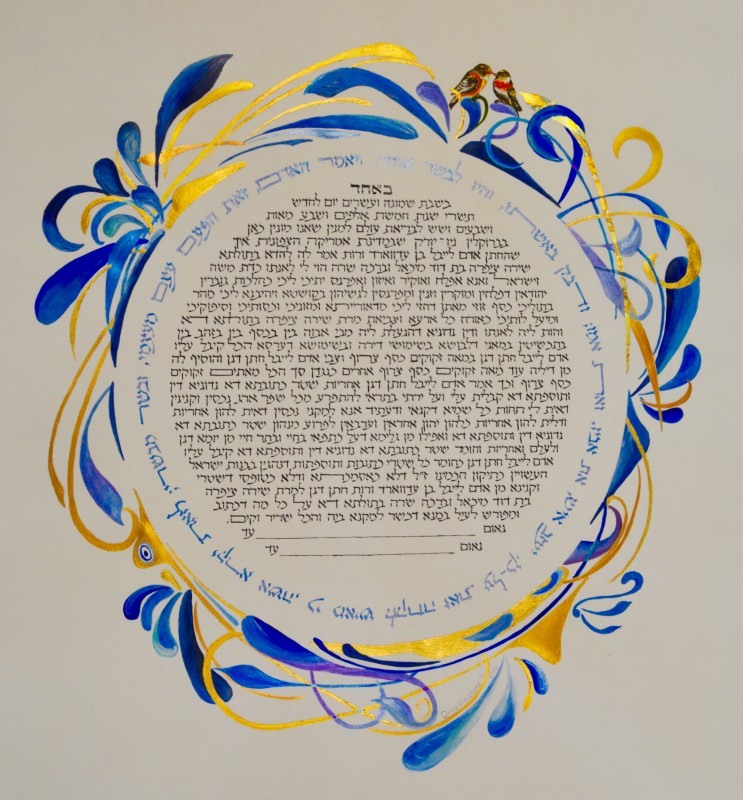 באחד
בשבת שמונה ועשרים יום לחדש
תשרי שנת חמשת אלפים ושבע מאות
ושבעים ושש לבריאת עולם למנין שאנו מונין כאן
בברוקלין ניו־יורק שבמדינת אמריקה הצפונית איך
שהחתן אדם לייבל בן עדווארד ורות אמר לה להדא בתולתא
שירה ציפרה בת דוד מיכאל וברכה שרה הוי לי לאנתו כדת משה
וישראל ואנא אפלח ואוקיר ואיזון ואפרנס יתיכי ליכי כהלכות גוברין
יהודאין דפלחין ומוקרין וזנין ומפרנסין לנשיהון בקושטא ויהיבנא ליכי מהר
בתוליכי כסף זוזי מאתן דחזי ליכי מדאורייתא ומזוניכי וכסותיכי וסיפוקיכי
ומיעל לותיכי כאורח כל ארעא וצביאת מרת שירה ציפרה בתולתא דא
והות ליה לאנתו ודין נדוניא דהנעלת ליה מבי אבוה בין בכסף בין בזהב בין
בתכשיטין במאני דלבושא בשימושי דירה ובשימושא דערסא הכל קיבל עליו
אדם לייבל חתן דנן במאה זקוקים כסף צרוף וצבי אדם לייבל חתן דנן והוסיף לה
מן דיליה עוד מאה זקוקים כסף צרוף אחרים כנגדן סך הכל מאתים זקוקים
כסף צרוף וכך אמר אדם לייבל חתן דנן אחריות שטר כתובתא דא נדוניא דין
ותוספתא דא קבלית עלי ועל ירתי בתראי להתפרע מכל שפר ארג נכסין וקנינין
דאית לי תחות כל שמיא דקנאי ודעתיד אנא למקני נכסין דאית להון אחריות
ודלית להון אחריות כלהון יהון אחראין וערבאין לפרוע מנהון שטר כתובתא דא
נדוניא דין ותוספתא דא ואפילו מן גלימא דעל כתפאי בחיי ובתר חיי מן יומא דנן
ולעלם ואחריות וחומר שטר כתובתא דא נדוניא דין ותוספתא דא קיבל עליו
אדם לייבל חתן דנן כחומר כל שטרי כתובות ותוספתות דנהגין בבנות ישראל
העשויין כתיקון חכמינו ז״ל דלא כאסמכתא ודלא כטופסי דשטרי
וקנינא מן אדם לייבל בן עדווארד ורות חתן דנן למרת שירה ציפרה
בת דוד מיכאל וברכה שרה בתולתא דא על כל מה דכתוב
ומפורש לעיל במנא דכשר למקנא ביה והכל שריר וקים.
נאום עד
נאום עד
ויאמר האדם זאת הפעם עצם מעצמי ובשר מבשרי לזאת יקרא אשה כי מאיש לקחה זאת על־כן יעזב איש את אביו ואת אמו ודבק באשתו והיו לבשר אחד